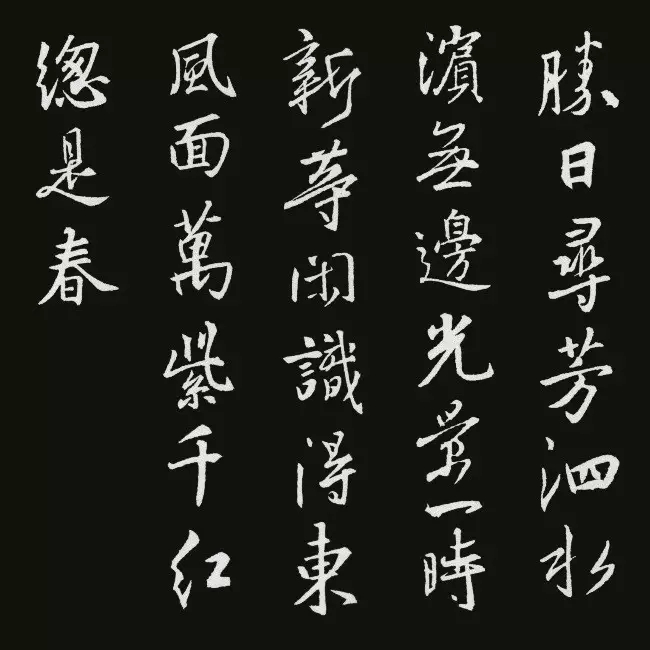 勝日尋芳泗水
濵無邊光景一時
新等閑識得東
風面萬紫千红
總是春